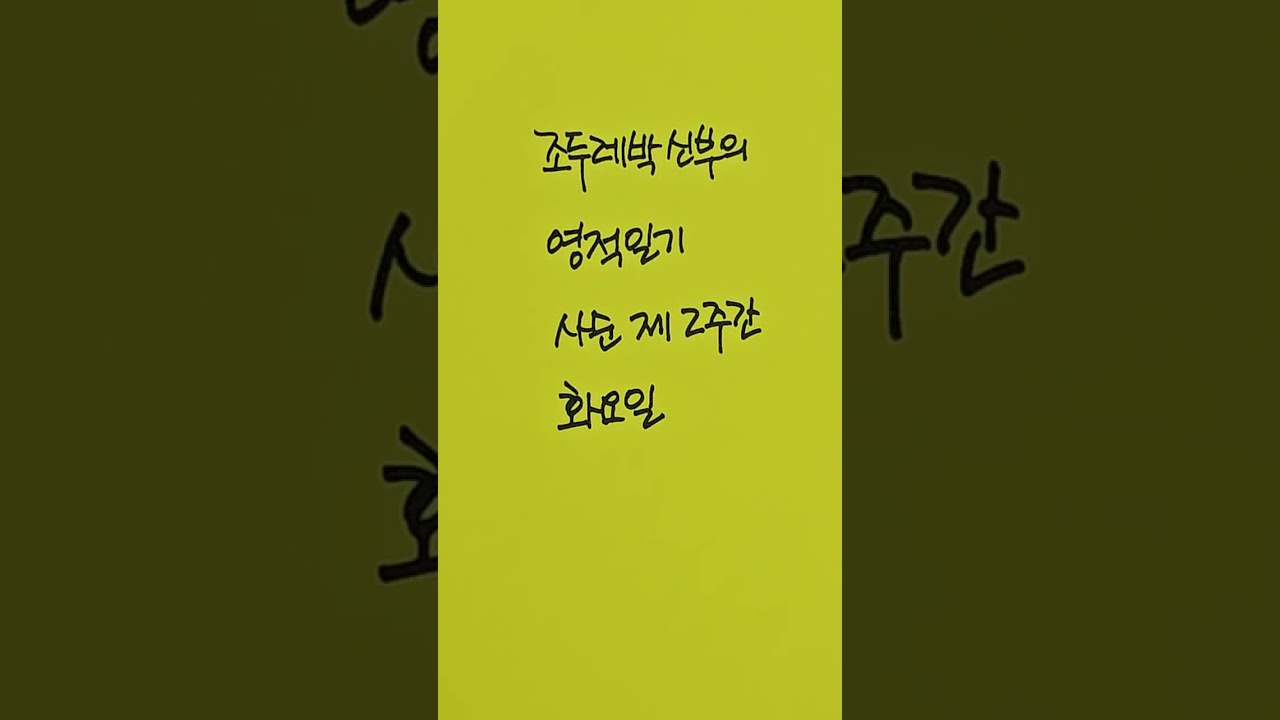 조두레박 신부의
영적일기
사순 제 2주간
화요일